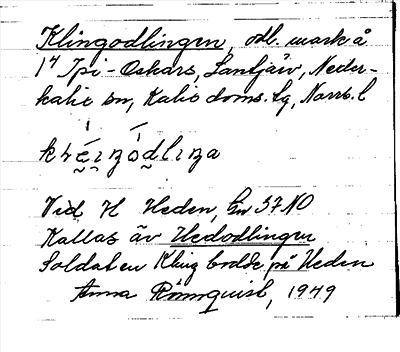 Klingodlingen, odl. mark å
1⁴ Ipi-Oskars, Lantjärv, Neder-
kalix sn, Kalix doms. lg, Norrb. l
Vid H Heden, 37 NO
Kallas äv Hedodlingen
Soldaten Kling bodde på Heden
Anna Rönnquist, 1949